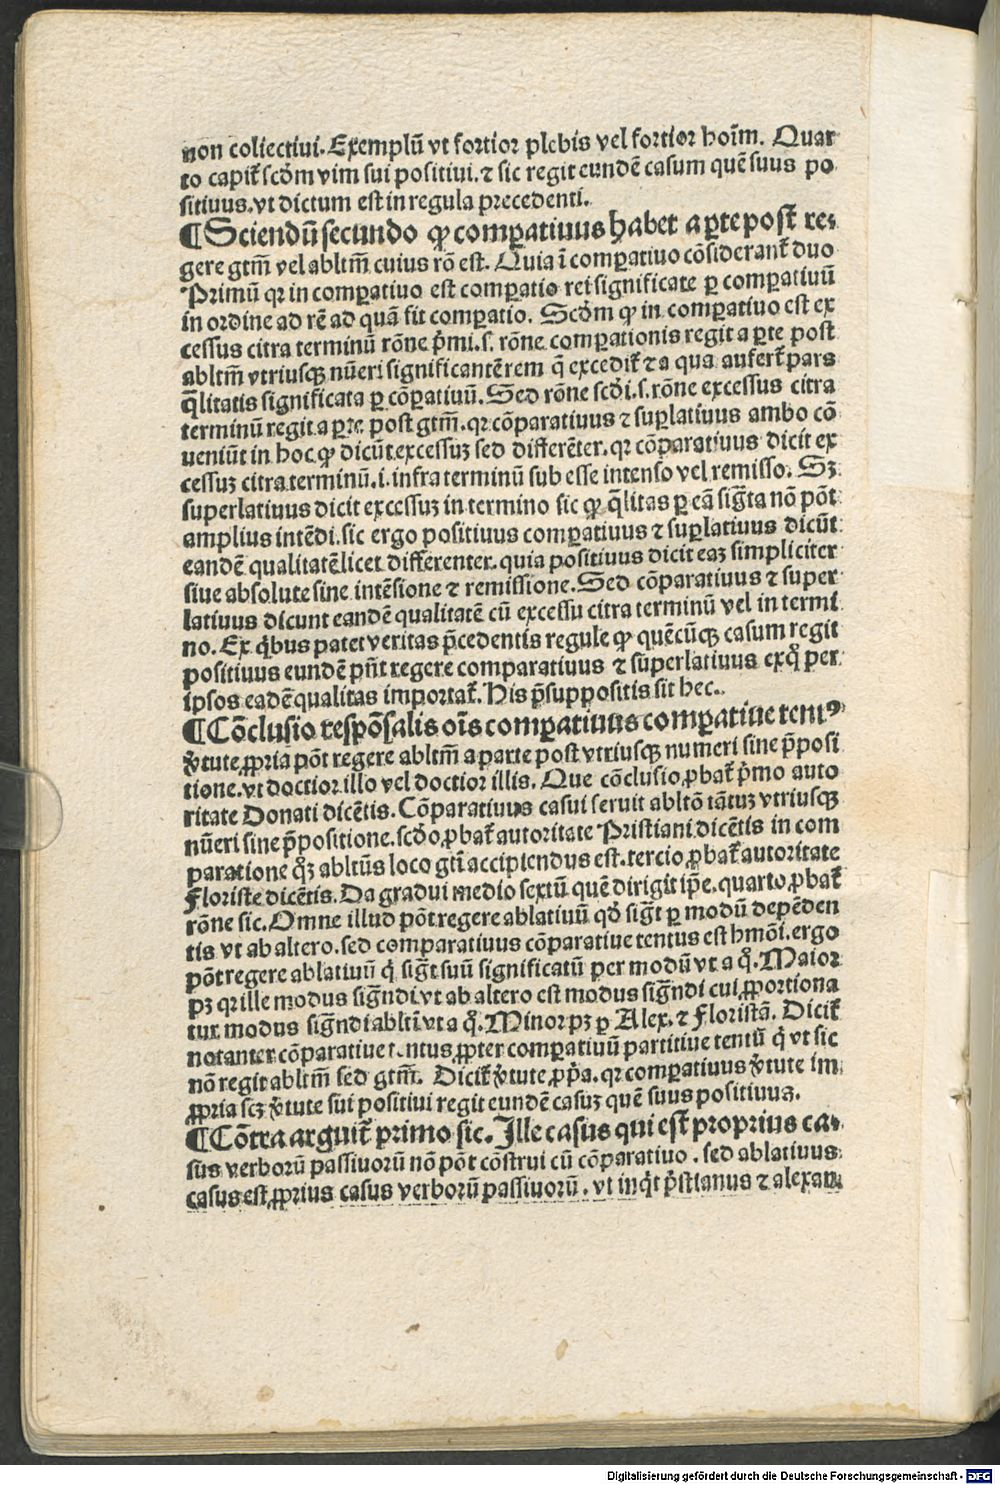 non collectiui. Exemplū vt fortior plebis vel fortior hoīm. Quar
to capit᷑ scd̄m vim sui positiui. ⁊ sic regit eundē casum quē suus po
sitiuus. vt dictum est in regula precedenti.
¶ Sciendū secundo ꝙ comꝑatiuus habet a ꝑte post re⸗
gere gtm̄ vel abltm̄ cuius rō est. Quia ī comꝑatiuo cōsiderant᷑ duo
Primū qꝛ in comꝑatiuo est comꝑatio rei significate ꝑ comꝑatiuū
in ordine ad rē ad quā fit comꝑatio. Scd̄m ꝙ in comꝑatiuo est ex
cessus citra terminū rōne pͥmi. s. rōne comꝑationis regit a ꝑte post
abltm̄ vtriusqꝫ nūeri significantē rem q̄ excedit᷑ ⁊ a qua aufert᷑ pars
q̄litatis significata ꝑ cōꝑatiuū. Sed rōne scd̄i. s. rōne excessus citra
terminū regit a ꝑte post gtm̄. qꝛ cōparatiuus ⁊ suꝑlatiuus ambo cō
ueniūt in hoc ꝙ dicūt excessuꝫ sed differēter. qꝛ cōparatiuus dicit ex
cessuꝫ citra terminū. i. infra terminū sub esse intenso vel remisso. Sꝫ
superlatiuus dicit excessuꝫ in termino sic ꝙ q̄litas ꝑ eā sigͥta nō pōt
amplius intēdi. sic ergo positiuus comꝑatiuus ⁊ suꝑlatiuus dicūt
eandē qualitatē licet differenter. quia positiuus dicit eaꝫ simpliciter
siue absolute sine intēsione ⁊ remissione. Sed cōparatiuus ⁊ super
latiuus dicunt eandē qualitatē cū excessu citra terminū vel in termi
no. Ex qͥbus patet veritas p̄cedentis regule ꝙ quēcūqꝫ casum regit
positiuus eundē pn̄t regere comparatiuus ⁊ superlatiuus ex qͦ per
ipsos eadē qualitas importat᷑. His p̄suppositis sit hec.
¶ Cōclusio respōsalis oīs comꝑatiuus comꝑatiue tentꝰ
v̓tute ꝓpria pōt regere abltm̄ a parte post vtriusqꝫ numeri sine p̄posi
tione. vt doctior illo vel doctior illis. Que cōclusio ꝓbat᷑ pͥmo auto
ritate Donati dicētis. Cōparatiuus casui seruit abltō tātuꝫ vtriusqꝫ
nūeri sine p̄positione. scd̄o ꝓbat᷑ autoritate Pristiani dicētis in com
paratione qͣꝫ abltūs loco gtī accipiendus est. tercio ꝓbat᷑ autoritate
Floriste dicētis. Da gradui medio sextū quē dirigit ip̄e. quarto ꝓbat᷑
rōne sic. Omne illud pōt regere ablatiuū qd̄ sigͥt ꝑ modū depēden
tis vt ab altero. sed comparatiuus cōparatiue tentus est hmōi. ergo
pōt regere ablatiuū qͥ sigͥt suū significatū per modū vt a qͦ. Maior
pꝫ qꝛ ille modus sigͥndi vt ab altero est modus sigͥndi cui ꝓportiona
tur modus sigͥndi abltī vt a qͦ. Minor pꝫ ꝑ Alex. ⁊ Floristā. Dicit᷑
notanter cōparatiue tentus ꝓpter comꝑatiuū partitiue tentū qͥ vt sic
nō regit abltm̄ sed gtm̄. Dicit᷑ v̓tute ꝓpͥa. qꝛ comꝑatiuus v̓tute im
ꝓpria scꝫ v̓tute sui positiui regit eundē casuꝫ quē suus positiuus.
¶ Cōtra arguit᷑ primo sic. Ille casus qui est proprius ca⸗
sus verborū passiuorū nō pōt cōstrui cū cōparatiuo. sed ablatiuus
casus est ꝓprius casus verborū passiuorū. vt inqͥt pͥstianus ⁊ alexan
Digitalisierung gefördert durch die Deutsche Forschungsgemeinschaft - DFG